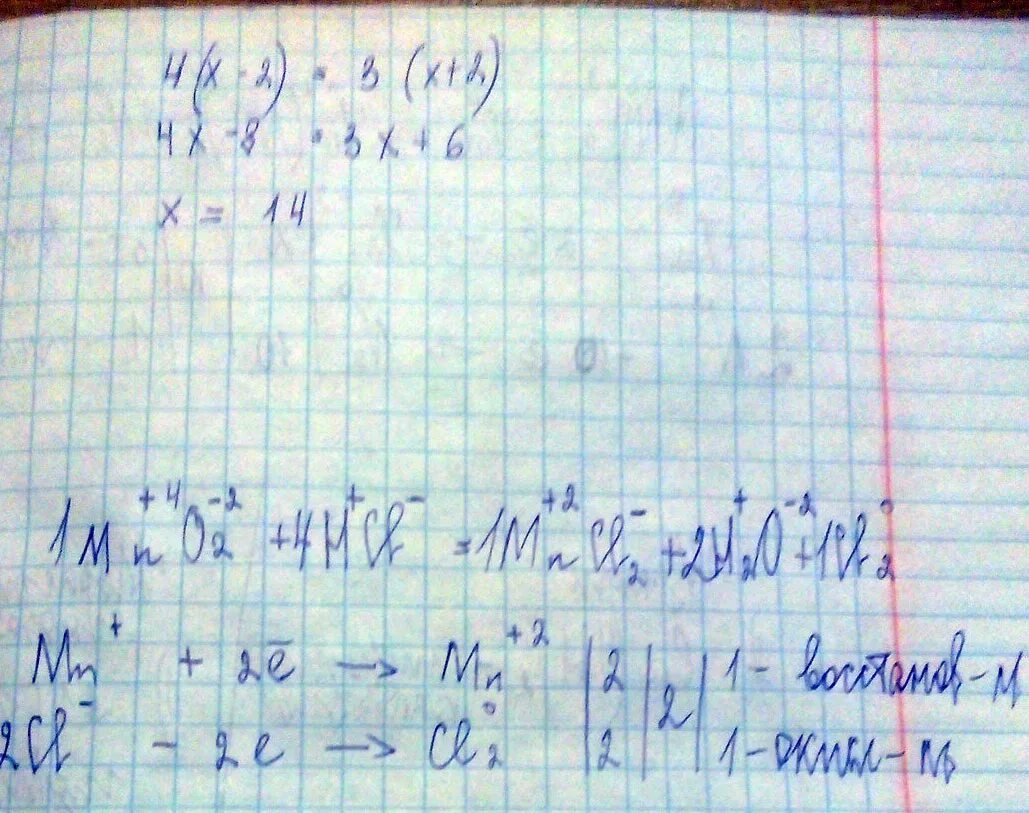 4(x - 2) = 3 (x + 2)
4x - 8 = 3x + 6
x = 14
1Mn⁺⁴O₂⁻² + 4H⁺Cl⁻ = 1Mn⁺²Cl₂⁻ + 2H₂⁺O⁻² + 1Cl₂⁰
Mn⁺ + 2ē → Mn⁺² | 2 | 2 | 1 - восстанов-м
2Cl⁻ - 2e → Cl₂⁰ | 2 | 1 - окисл-ль